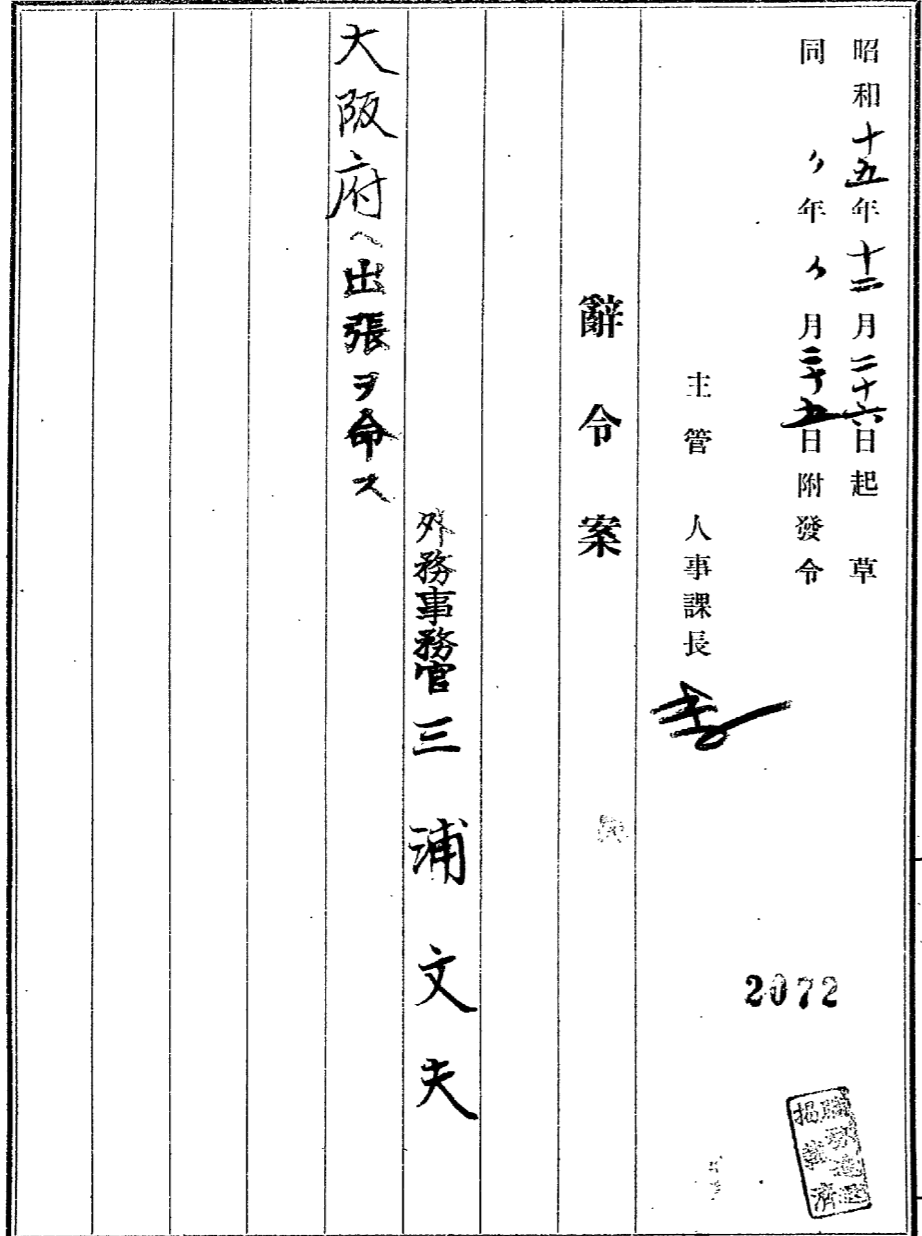 昭和十五年十二月二十六日起草
同〃年〃月二十五日附發令
主管 人事課長
2072
辭令案
外務事務官 三浦文夫
大阪府ヘ出張ヲ命ス